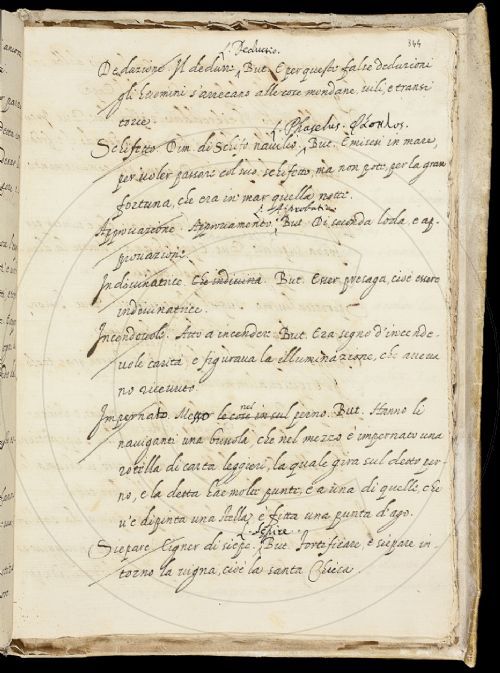 344
L. Deductio.
Deduzione. Il dedurre. But. E per queste false deduzioni
gli huomini s'arrecano alle cose mondane, vili, e transi
torie.
L. Phaselus. φάσηλος.
Schifetto. Dim. di Schifo navilio. But. E misesi in mare,
per voler passare col suo schifetto, ma non potè, per la gran
fortuna, che era in mar quella notte.
L. Approbatio
Approvazione. Approvamento. But. Di seconda loda, e ap
provazione.
Indovinatrice. Che indivina. But. Esser presaga, cioè essere
indovinatrice.
Incendevole. Atto a incendere. But. Era segno d'incende-
vole carità, e figurava la illuminazione, che aveva
no ricevuto.
Impernato. Messo nel perno. But. Hanno li
naviganti una bussola, che nel mezzo è impernato una
rotella di carta leggieri, la quale gira sul detto per-
no, e la detta ha molte punte, e a una di quelle, che
v'è dipinta una stella, è fitta una punta d'ago.
L. Sepire.
Siepare. Cigner di siepe. But. Fortificare, e siepare in-
torno la vigna, cioè la santa Chiesa.